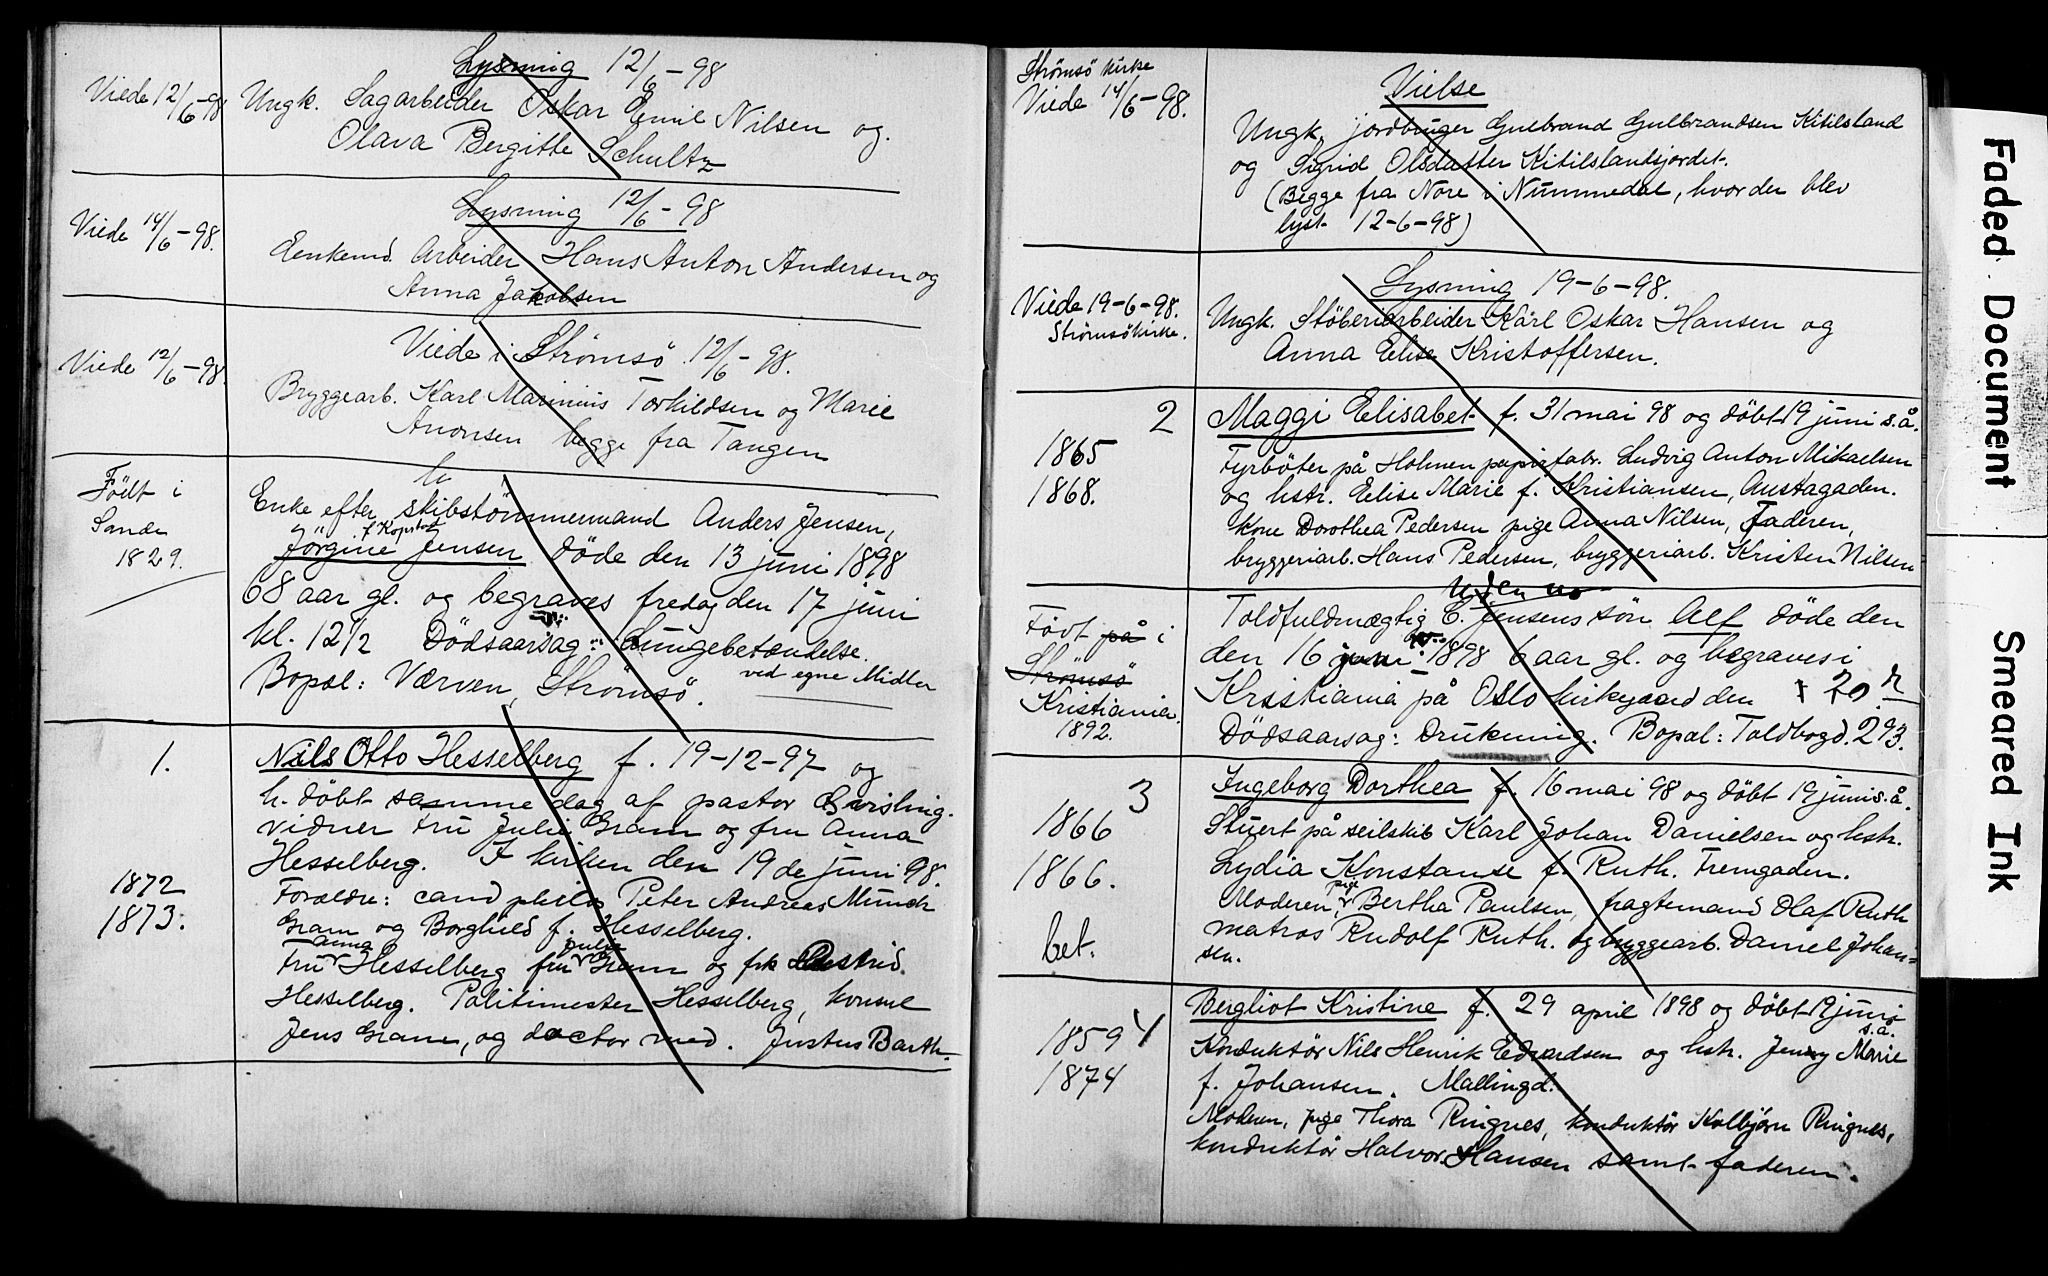 Lysning 12/6-98
Viede 12/6-98 Ungk. Sagarbeider Oskar Emil Nilsen og
Olava Bergitte Schultz
Lysning 12/6-98
Viede 14/6-98.
Enkemd. Arbeider Hans Anton Andersen og
Anna Jakobsen
Viede i Strømsö 12/6-98.
Viede 12/6-98.
Bryggearb. Karl Marinius Torkildsen og Marie
Aronsen begge fra Tangen
Födt i
Sande
1829.
Enke efter skibstömmermand Anders Jensen,
f. Kopstad
Jörgine Jensen döde den 13 juni 1898
68 aar gl. og begraves fredag den 17 juni
kl. 12 1/2 Dödsaarsag: Lungebetændelse.
ved egne Midler
Bopæl: Værven, Strömsö.
1.
Nils Otto Hesselberg f. 19-12-97 og
h. döbt samme dag af pastor Qvisling.
vidner Fru Julie Gram og fru Anna
Hesselberg. I kirken den 19de juni 98.
1872
1873.
Forældre: cand philos Peter Andreas Munch
Gram og Borghild f. Hesselberg.
Anna Julie
Fru Hesselberg fru Gram og frk Astrid
Hesselberg. Politimester Hesselberg, konsul
Jens Gram, og doctor med. Justus Barth.
Strømsö kirke
Viede 14/6-98.
Vielse
Ungk. jordbruger Gulbrand Gulbrandsen Kitilsland
og Sigrid Olsdatter Kitilslandsjordet.
(Begge fra Nore i Nummedal, hvor der blev
lyst 12-6-98)
Lysning 19-6-98.
Viede 19-6-98.
Strømsö kirke.
Ungk. Stöberiarbeider Karl Oskar Hansen og
Anna Elise Kristoffersen.
2
1865
1868.
Maggi Elisabet f. 31 mai 98 og döbt 19 juni s.å.
Fyrböter på Holmen papirfabr. Ludvig Anton Mikaelsen
og hstr. Elise Marie f. Kristiansen, Austagaden.
kone Dorothea Pedersen pige Anna Nilsen, Faderen,
bryggeriarb. Hans Pedersen, bryggeriarb. Kristen Nilsen
Uden no
Födt på i
Strømsö
Kristiania.
1892.
Toldfuldmægtig C. Jensens sön Alf döde den
den 16 juni 1898 6 aar gl. og begraves i
Kristiania på Oslo kirkegaard den 20
Dödsaarsag: Drukning. Bopæl: Toldbogd. 293.
3
1866
1866.
bet.
Ingeborg Dorthea f. 16 mai 98 og döbt 19 juni s.å.
Stuert på seilskib Karl Johan Danielsen og hstr.
Lydia Konstanse f. Ruth. Fremgaden.
Moderen, pige Bertha Paulsen, fragtemand Olaf Ruth
matros Rudolf Ruth. og bryggearb. Daniel Johan-
sen.
4
1859
1874
Bergliot Kristine f. 29 april 1898 og döbt 19 juni
s.å.
Konduktör Nils Henrik Edvardsen og hstr. Jenny Marie
f. Johansen. Mallingd.
Moderen, pige Thora Ringnes, konduktör Kolbjörn Ringnes,
konduktör Halvor Hansen samt faderen.
Faded Document
Smeared Ink